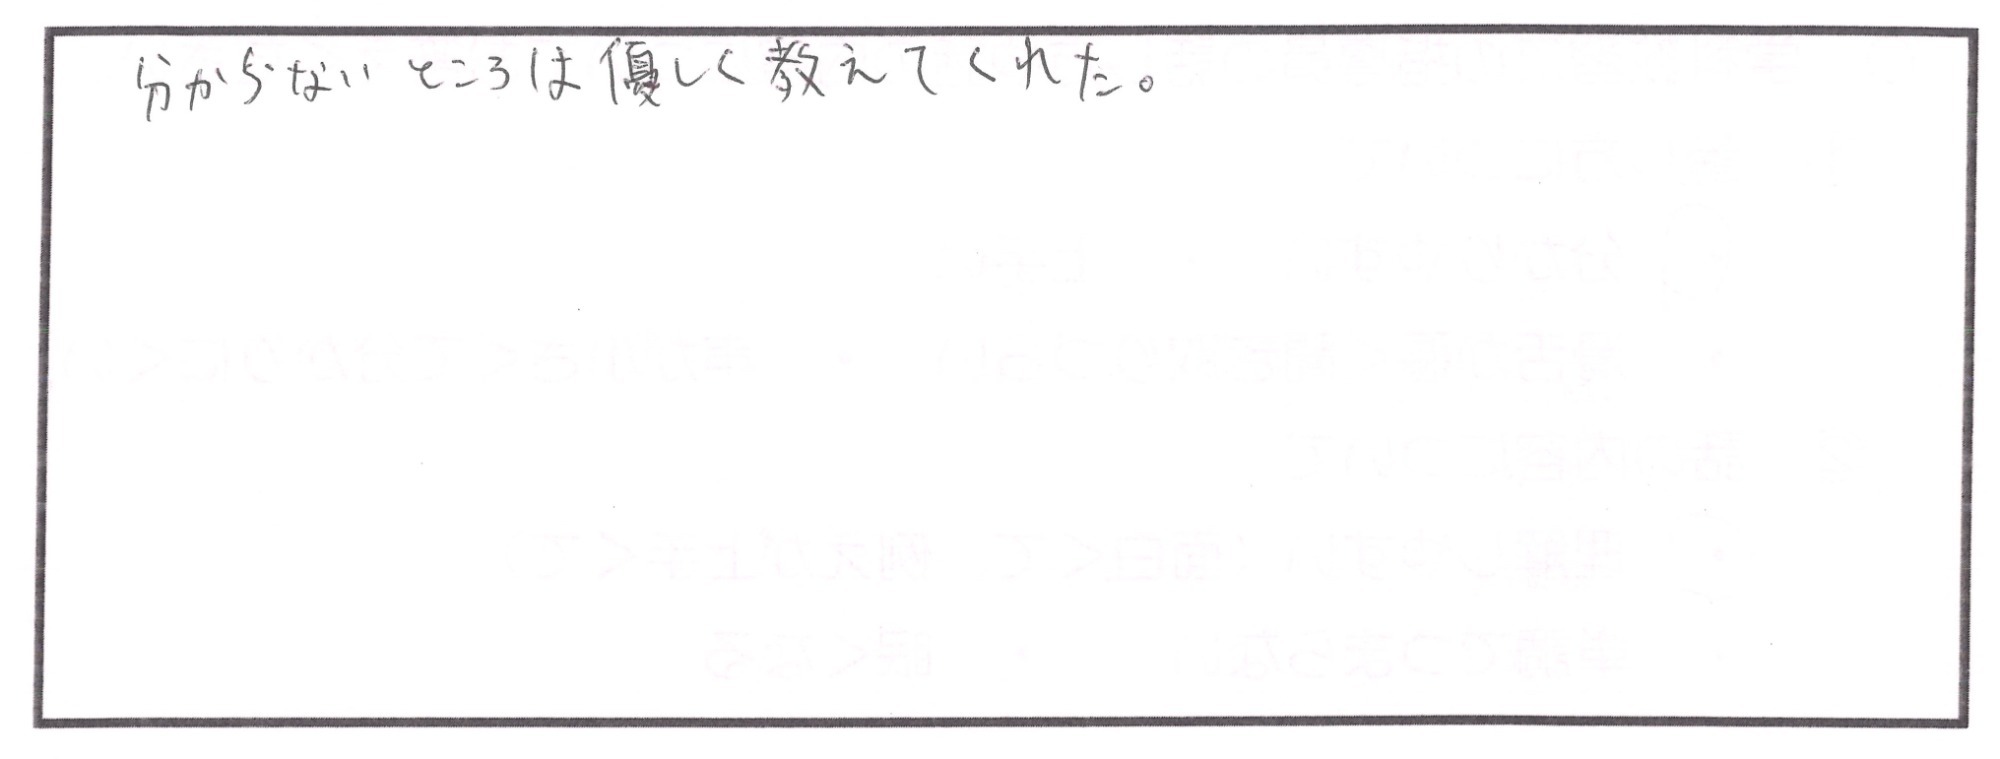 分からないところは優しく教えてくれた。